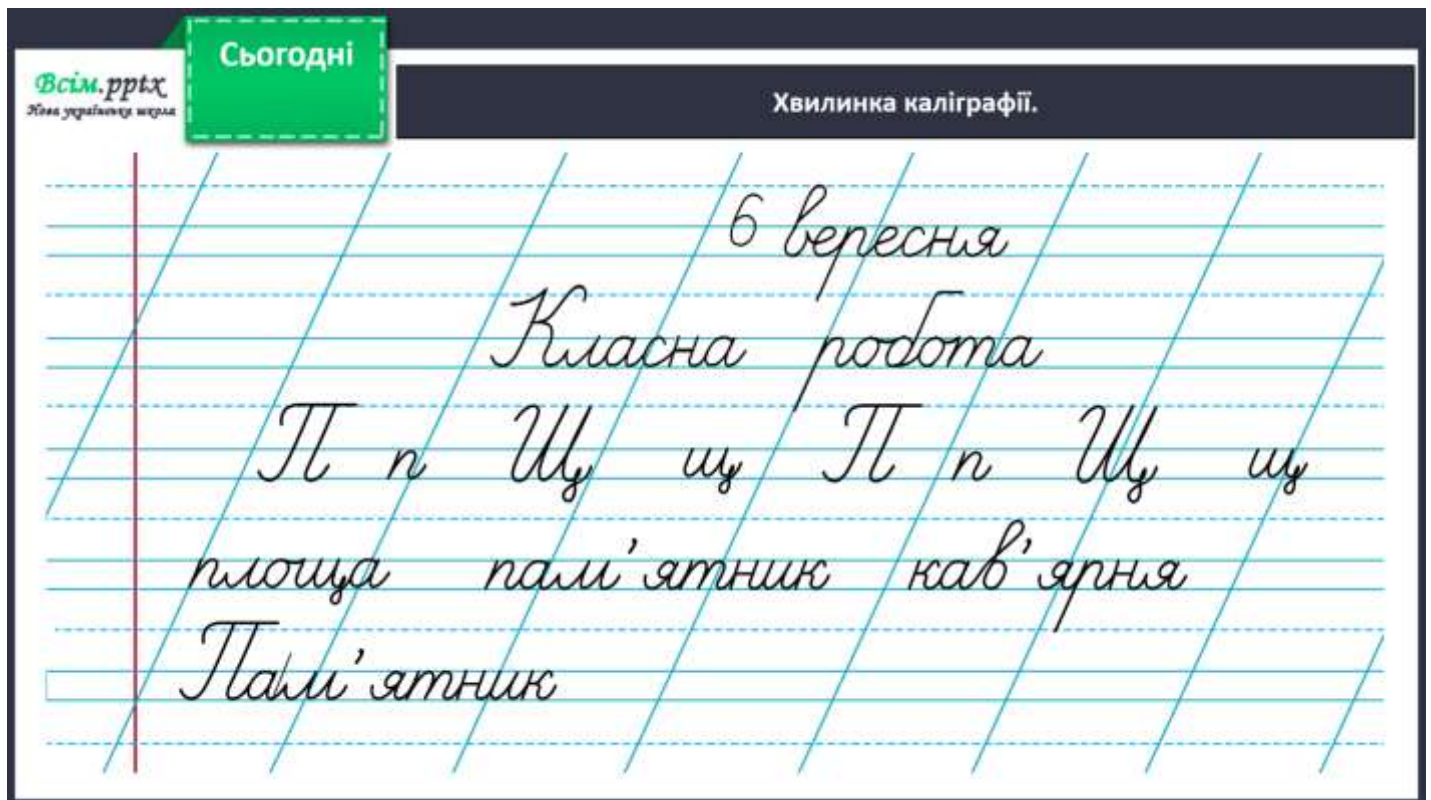 Сьогодні
Всім.pptx
Нова українська школа
Хвилинка каліграфії.
6 вересня
Класна робота
П п Щ щ П п Щ щ
площа пам’ятник кав’ярня
Пам’ятник